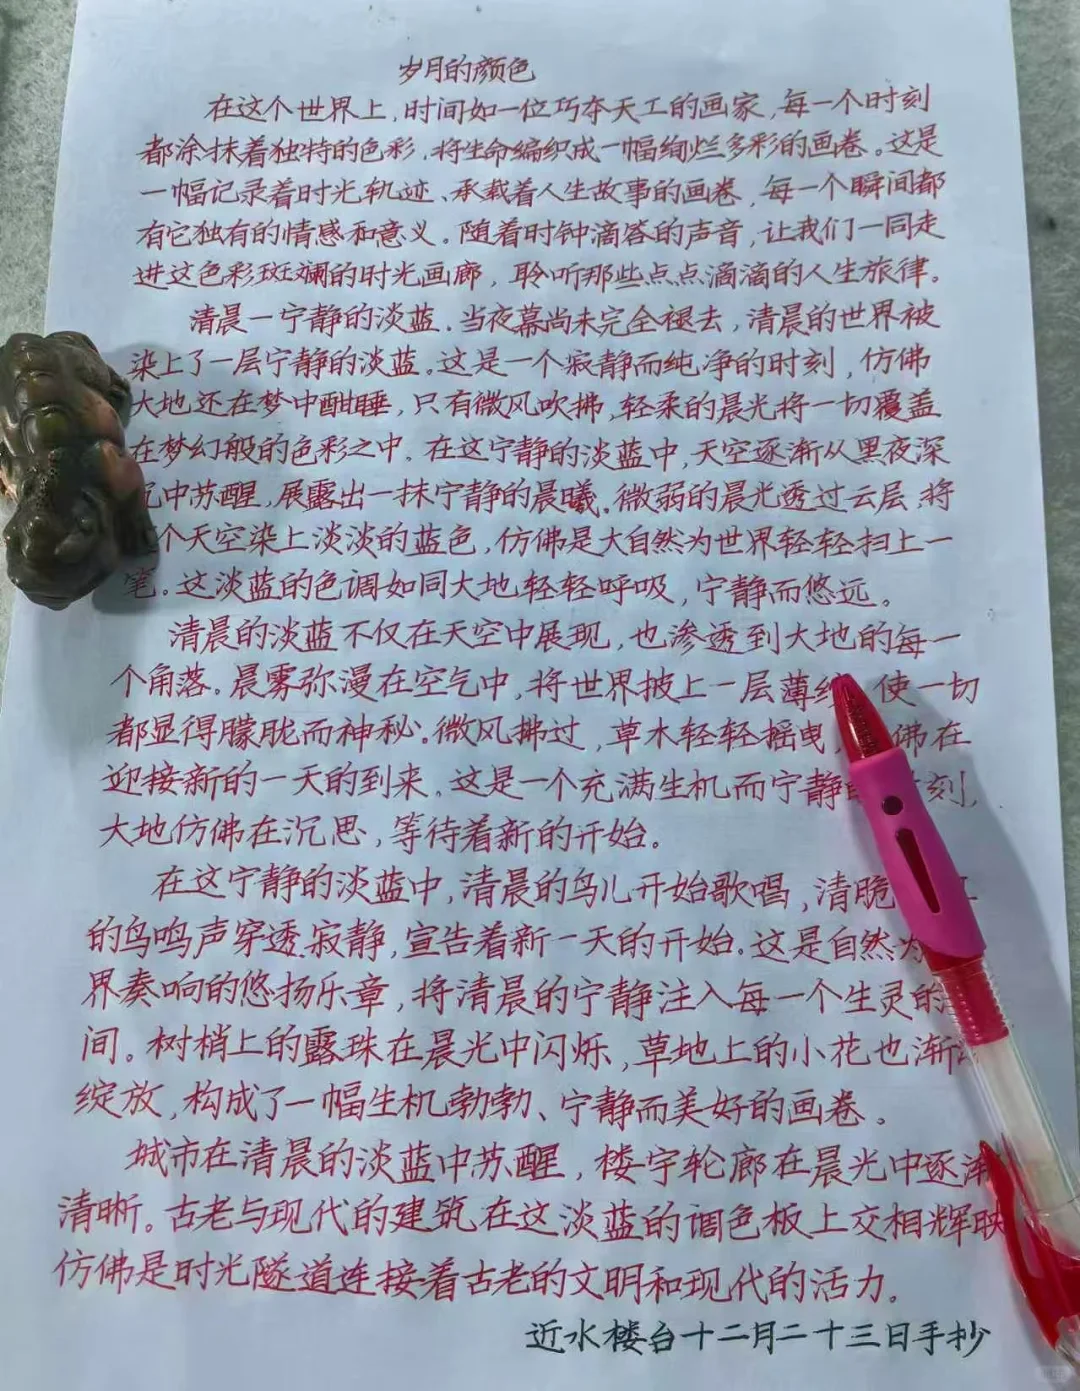 岁月的颜色
在这个世界上,时间如一位巧夺天工的画家,每一个时刻
都涂抹着独特的色彩,将生命编织成一幅绚烂多彩的画卷。这是
一幅记录着时光轨迹、承载着人生故事的画卷,每一个瞬间都
有它独有的情感和意义。随着时钟滴答的声音,让我们一同走
进这色彩斑斓的时光画廊,聆听那些点点滴滴的人生旅律。
清晨一宁静的淡蓝.当夜幕尚未完全褪去,清晨的世界被
染上了一层宁静的淡蓝。这是一个寂静而纯净的时刻,仿佛
大地还在梦中酣睡,只有微风吹拂,轻柔的晨光将一切覆盖
在梦幻般的色彩之中。在这宁静的淡蓝中,天空逐渐从黑夜深
中苏醒,展露出一抹宁静的晨曦。微弱的晨光透过云层,将
个天空染上淡淡的蓝色,仿佛是大自然为世界轻轻扫上一
笔。这淡蓝的色调如同大地轻轻呼吸,宁静而悠远。
清晨的淡蓝不仅在天空中展现,也渗透到大地的每一
个角落。晨雾弥漫在空气中,将世界披上一层薄纱,使一切
都显得朦胧而神秘。微风拂过,草木轻轻摇曳,佛在
迎接新的一天的到来。这是一个充满生机而宁静刻,
大地仿佛在沉思,等待着新的开始。
在这宁静的淡蓝中,清晨的鸟儿开始歌唱,清脆
的鸟鸣声穿透寂静,宣告着新一天的开始。这是自然为
界奏响的悠扬乐章,将清晨的宁静注入每一个生灵的
间。树梢上的露珠在晨光中闪烁,草地上的小花也渐
绽放,构成了一幅生机勃勃、宁静而美好的画卷。
城市在清晨的淡蓝中苏醒,楼宇轮廓在晨光中逐渐
清晰。古老与现代的建筑在这淡蓝的调色板上交相辉映
仿佛是时光隧道连接着古老的文明和现代的活力。
近水楼台十二月二十三日手抄